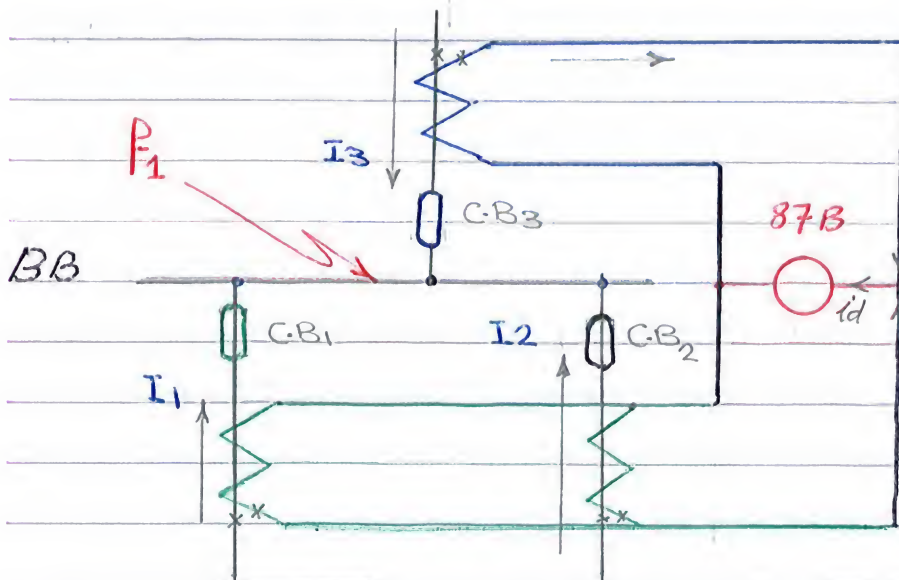 I3
C.B3
F1
87B
BB
id
C.B1
I2
C.B2
I1